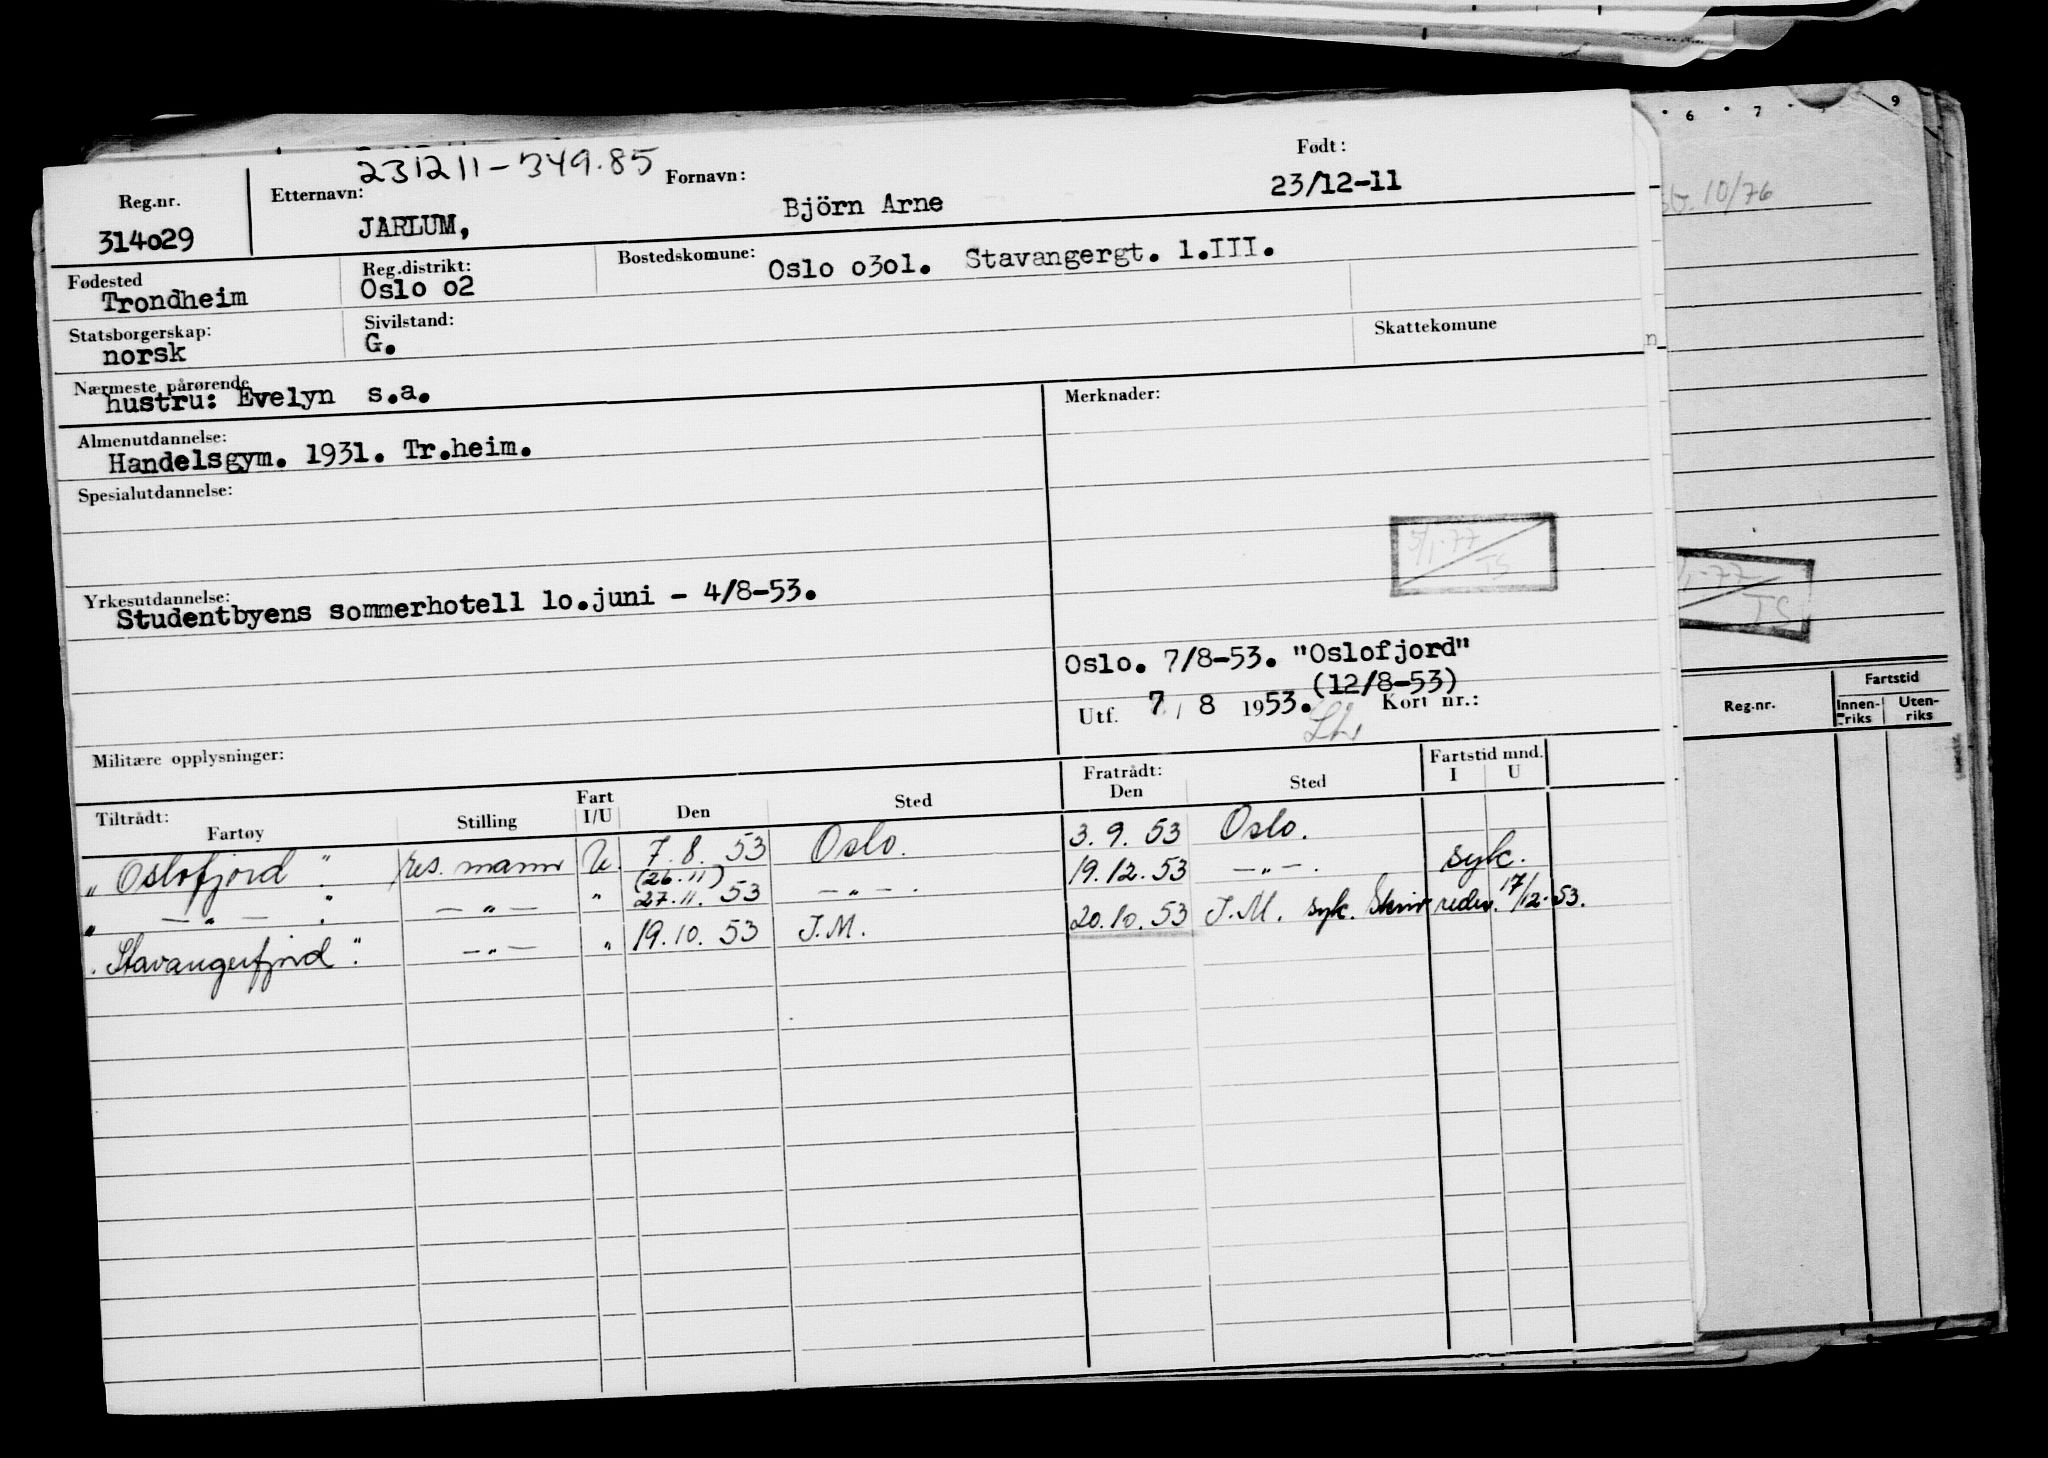 231211-349.85
Reg.nr. Etternavn: Fornavn: Født:
314o29 JARLUM, Björn Arne 23/12-11
Fødested Reg.distrikt: Bostedskomune:
Trondheim Oslo o2 Oslo o3o1. Stavangergt. 1.III.
Statsborgerskap: Sivilstand: Skattekomune
norsk G.
Nærmeste pårørende
hustru: Evelyn s.a.
Almenutdannelse: Merknader:
Handelsgym. 1931. Tr.heim.
Spesialutdannelse:
5/1-77
TS
Yrkesutdannelse:
Studentbyens sommerhotell 1o.juni - 4/8-53.
Oslo. 7/8-53. "Oslofjord"
(12/8-53)
Utf. 7 / 8 1953. Kort nr.:
Militære opplysninger:
Tiltrådt: Fartøy Stilling Fart I/U Den Sted Fratrådt: Den Sted Fartstid mnd. I U
" Oslofjord " res. mann U. 7.8. 53 Oslo. 3.9.53 Oslo.
(26.11)
" — " — " — " — " 27.11.53 — " — . 19.12.53 — " — . syk.
" Stavangerfjord " — " — " 19.10.53 J.M. 20.10.53 J.M. syk. Skriv reder. 17/12-53.
6 7 9
10/76
1-77
TS
n
Reg.nr. Fartstid
Innen-riks Uten-riks